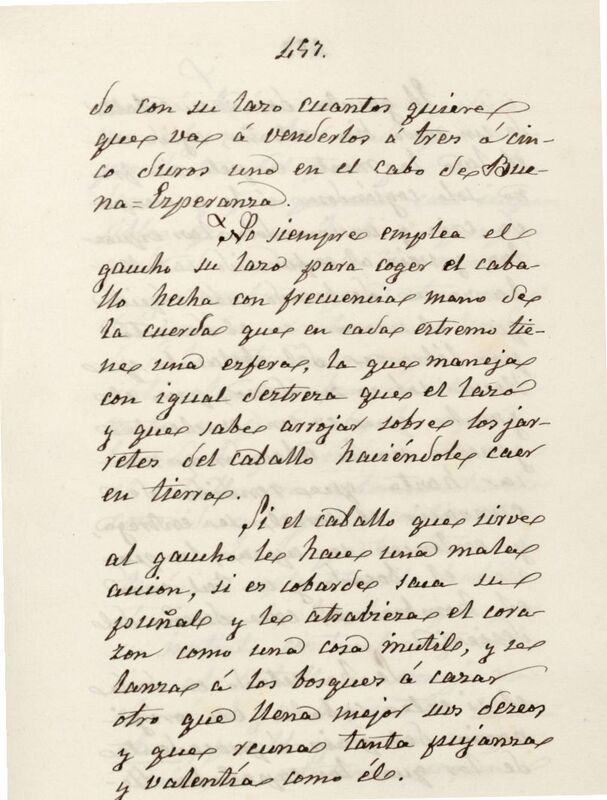 457.
do con su lazo cuantos quiere
que va á venderlos á tres ó cin-
co duros uno en el cabo de Bue-
na=Esperanza.
No siempre emplea el
gaucho su lazo para coger el caba-
llo hecha con frecuencia mano de
la cuerda que en cada estremo tie-
ne una esfera, la que maneja
con igual destreza que el lazo
y que sabe arrojar sobre los jar-
retes del caballo haciéndole caer
en tierra.
Si el caballo que sirve
al gaucho le hace una mala
accion, si es cobarde saca su
puñal y le atraviesa el cora-
zon como una cosa inutil, y se
lanza á los bosques á cazar
otro que llena mejor sus deseos
y que reuna tanta pujanza
y valentía como él.